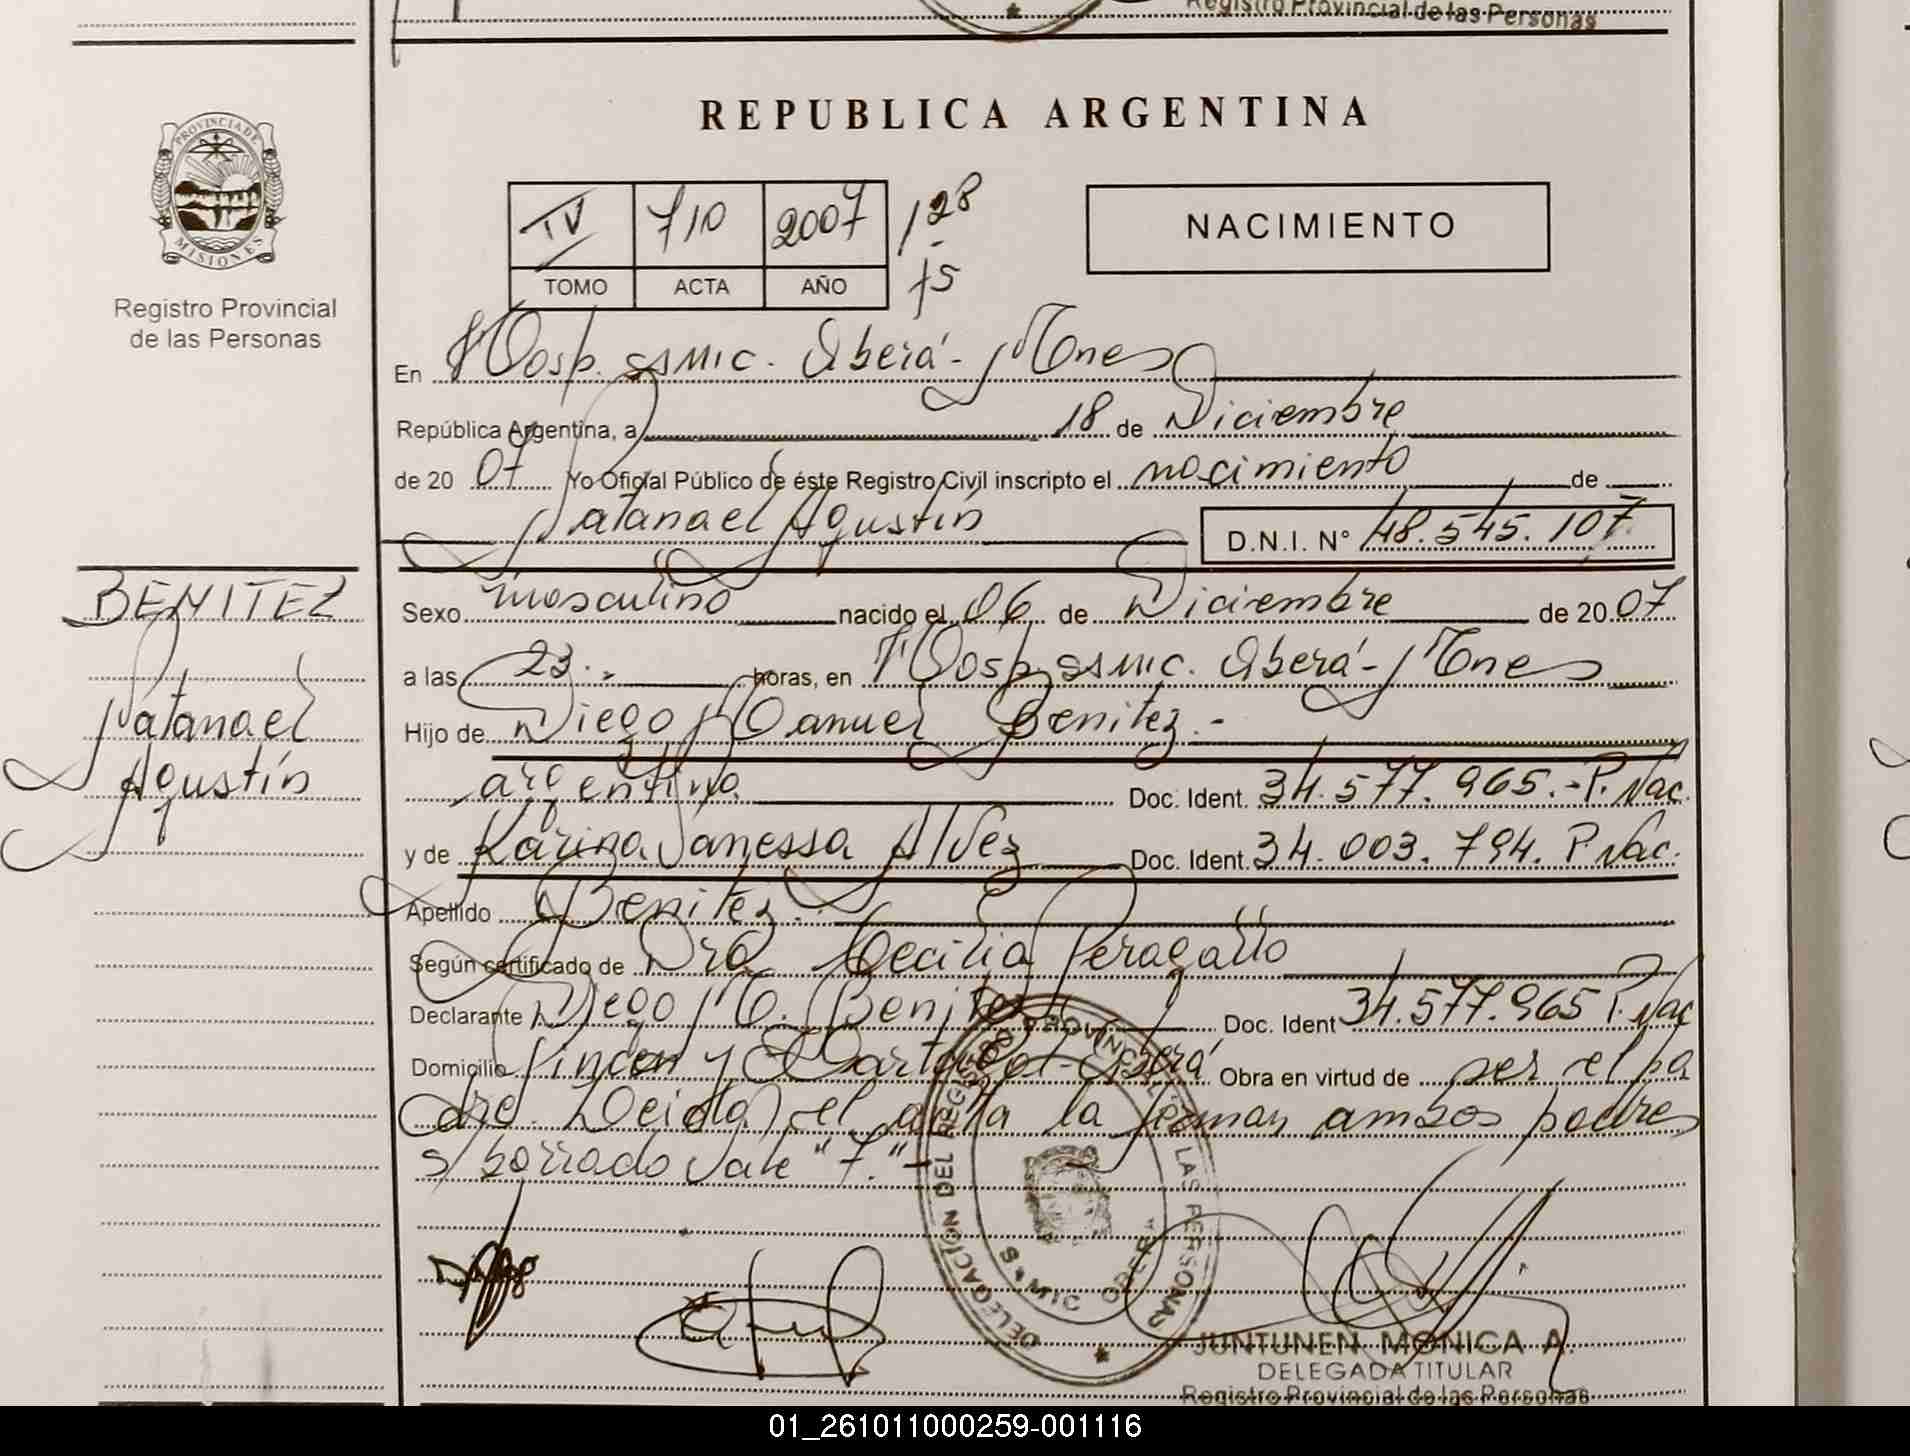 Registro Provincial de las Personas
REPUBLICA ARGENTINA
PROVINCIA DE
MISIONES
Registro Provincial
de las Personas
IV 710 2007 128
TOMO ACTA AÑO 15
NACIMIENTO
En Hosp. SAMIC. Oberá - Mnes
República Argentina, a 18 de Diciembre
de 20 07 Yo Oficial Público de éste Registro Civil inscripto el nacimiento de
Natanael Agustín D.N.I. N° 48.545.107
BENITEZ
Natanael
Agustín
Sexo masculino nacido el 06 de Diciembre de 20 07
a las 23.- horas, en Hosp. SAMIC. Oberá - Mnes
Hijo de Diego Manuel Benitez.-
argentino Doc. Ident. 34.577.965.- P. Nac.
y de Karina Vanessa Alvez Doc. Ident. 34.003.794. P. Nac.
Apellido Benitez.
Según certificado de Dra Cecilia Peragallo
Declarante Diego M. Benitez Doc. Ident 34.577.965 P. Nac
Domicilio Rincon y - Oberá Obra en virtud de ser el pa
dre. Leida el acta la firman ambos padres
s/ borrado vale "7."-
DELEGACION DEL REGISTRO PROVINCIAL LAS PERSONAS
SAMIC OBERA
JUNTUNEN MONICA A.
DELEGADA TITULAR
Registro Provincial de las Personas
01_261011000259-001116